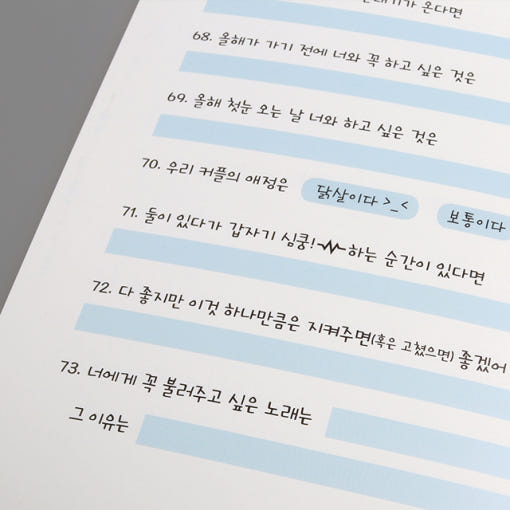 온다면
68. 올해가 가기 전에 너와 꼭 하고 싶은 것은
69. 올해 첫눈 오는 날 너와 하고 싶은 것은
70. 우리 커플의 애정은 닭살이다 >_< 보통이다
71. 둘이 있다가 갑자기 심쿵! 하는 순간이 있다면
72. 다 좋지만 이것 하나만큼은 지켜주면(혹은 고쳤으면) 좋겠어
73. 너에게 꼭 불러주고 싶은 노래는
그 이유는